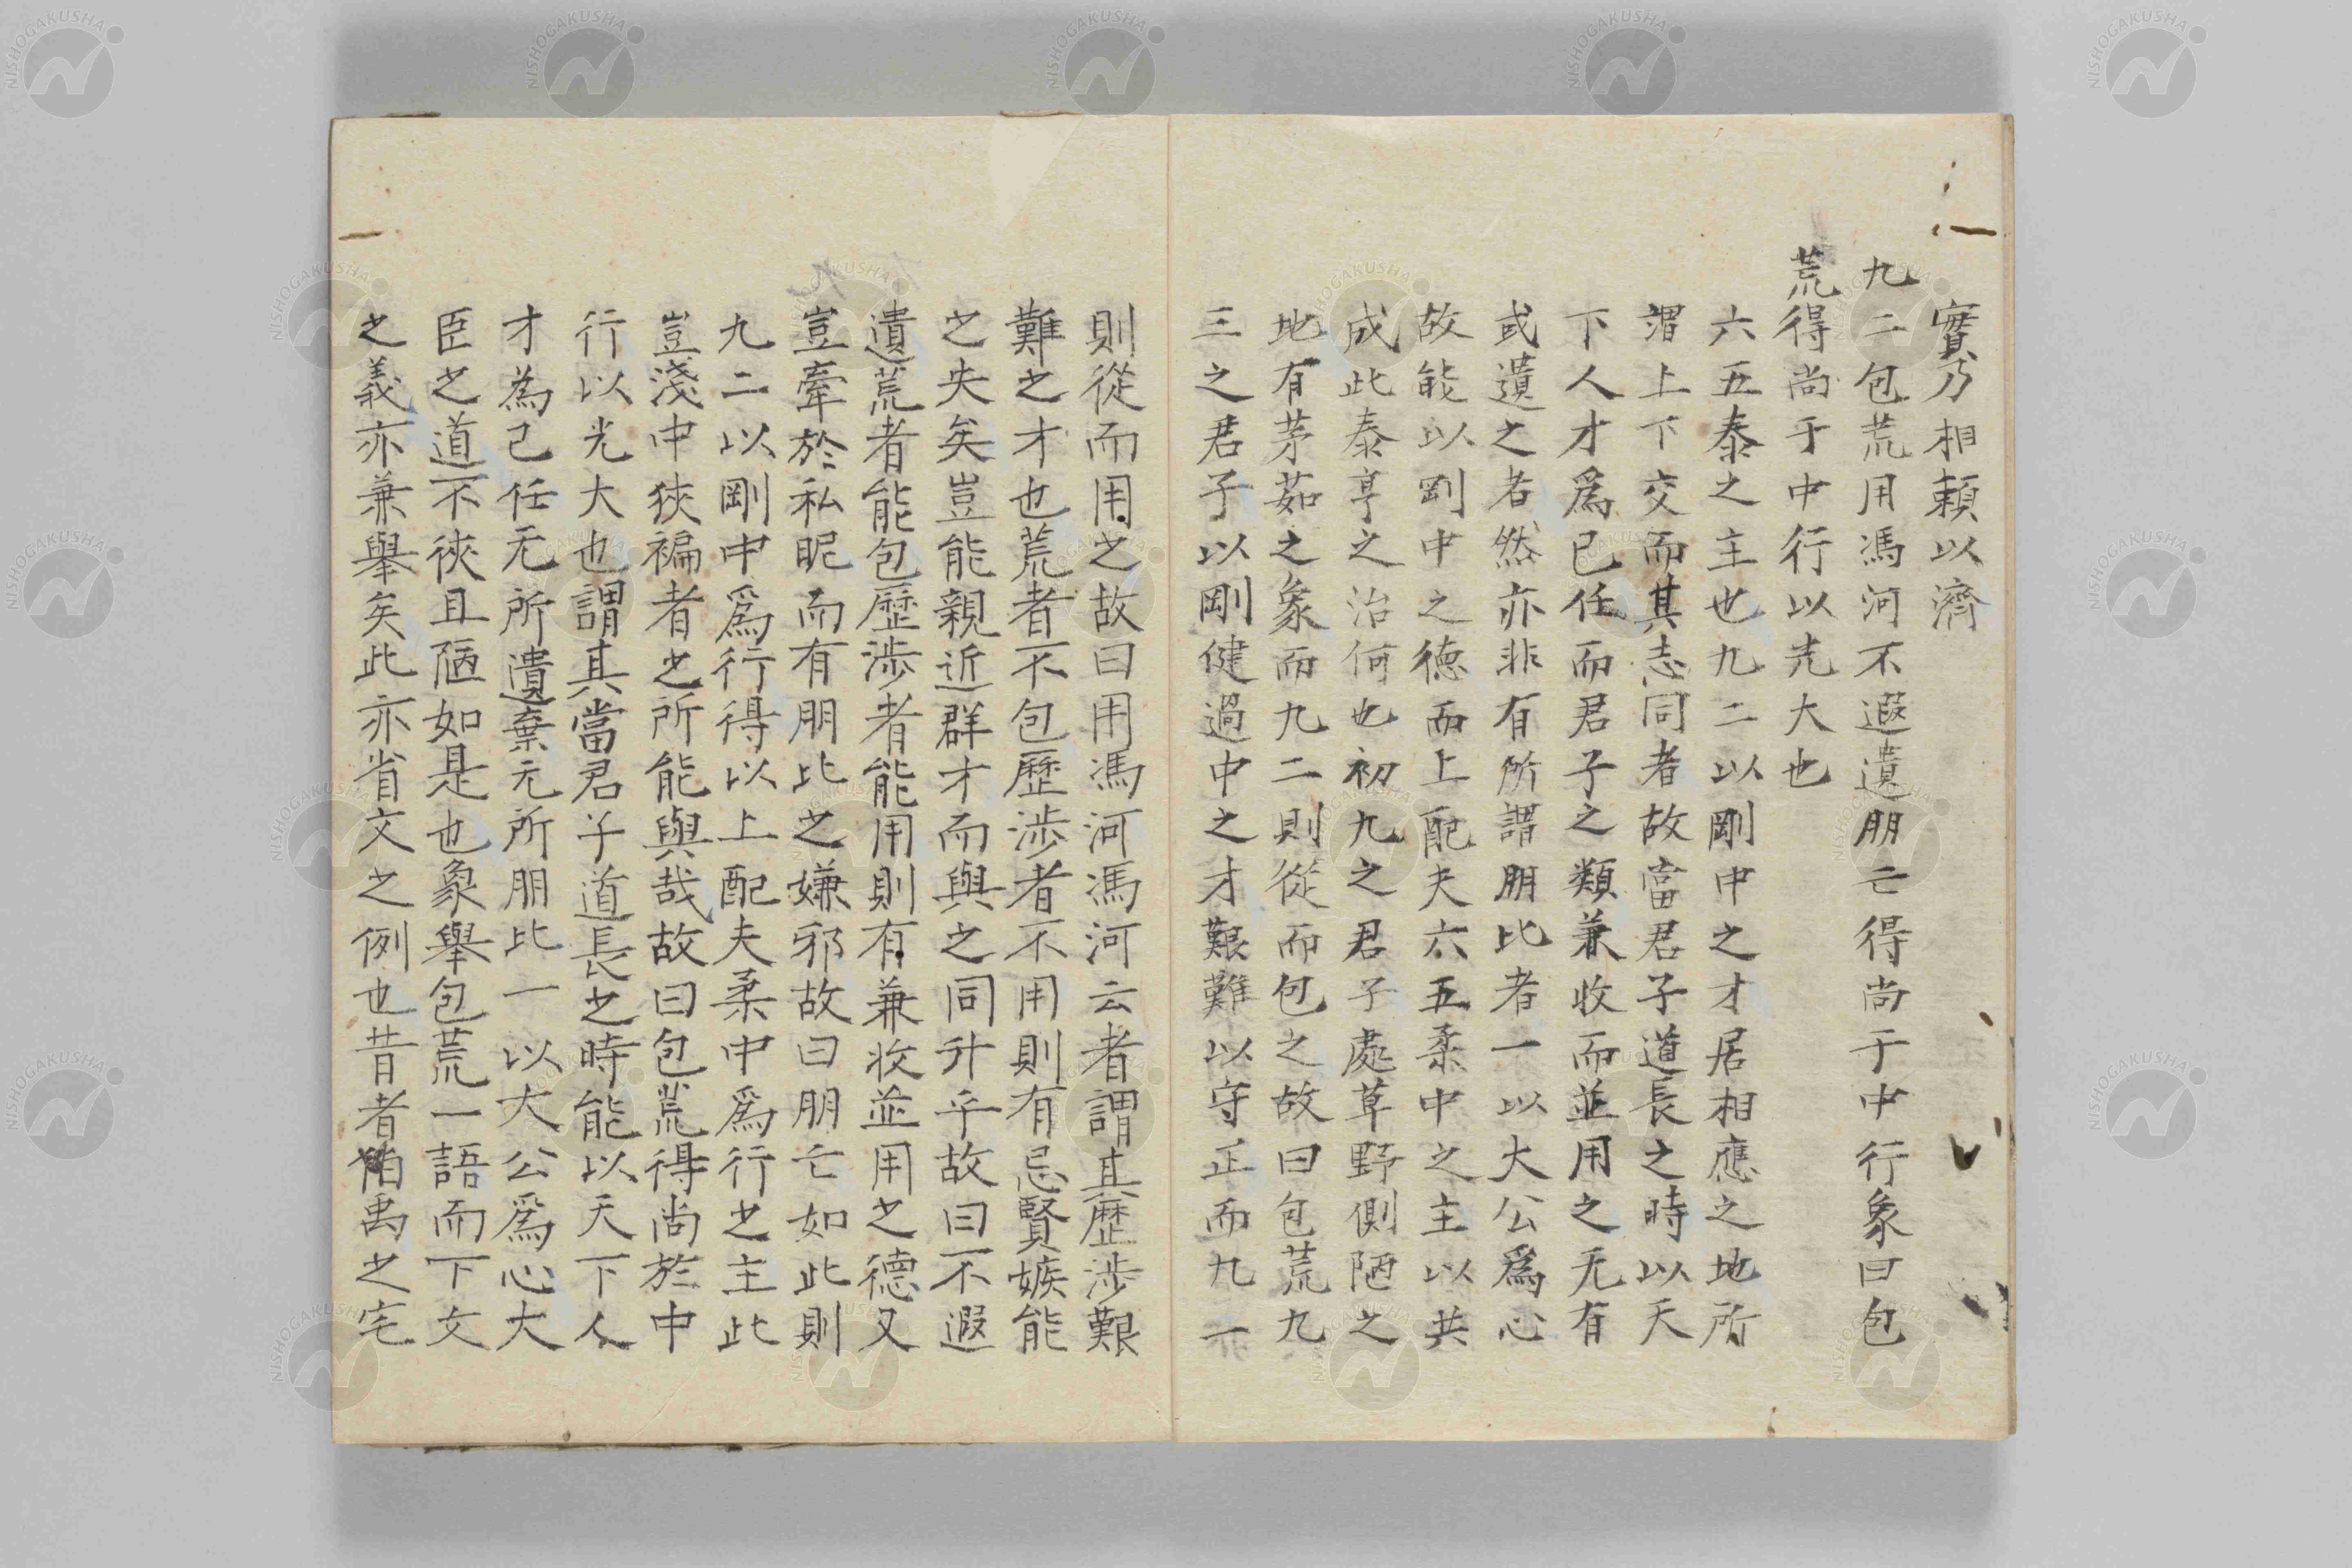 實乃相頼以濟
九二包荒用馮河不遐遺朋亡得尚于中行象曰包
荒得尚于中行以光大也
六五泰之主也九二以剛中之才居相應之地所
謂上下交而其志同者故當君子道長之時以天
下人才爲已任而君子之類兼收而並用之无有
或遺之者然亦非有所謂朋比者一以大公爲心
故能以剛中之德而上配夫六五柔中之主以共
成此泰亨之治何也初九之君子處草野側陋之
地有茅茹之象而九二則從而包之故曰包荒九
三之君子以剛健過中之才艱難以守正而九二亦
則從而用之故曰用馮河馮河云者謂其歷涉艱
難之才也荒者不包歷涉者不用則有忌賢嫉能
之失矣豈能親近群才而與之同升乎故曰不遐
遺荒者能包歷涉者能用則有兼收並用之德又
豈牽於私昵而有朋比之嫌邪故曰朋亡如此則
九二以剛中爲行得以上配夫柔中爲行之主此
豈淺中狹褊者之所能與哉故曰包荒得尚於中
行以光大也謂其當君子道長之時能以天下人
才為己任无所遺棄无所朋比一以大公爲心大
臣之道不狹且陋如是也象舉包荒一語而下文
之義亦兼舉矣此亦省文之例也昔者伯禹之宅
NISHOGAKUSHA